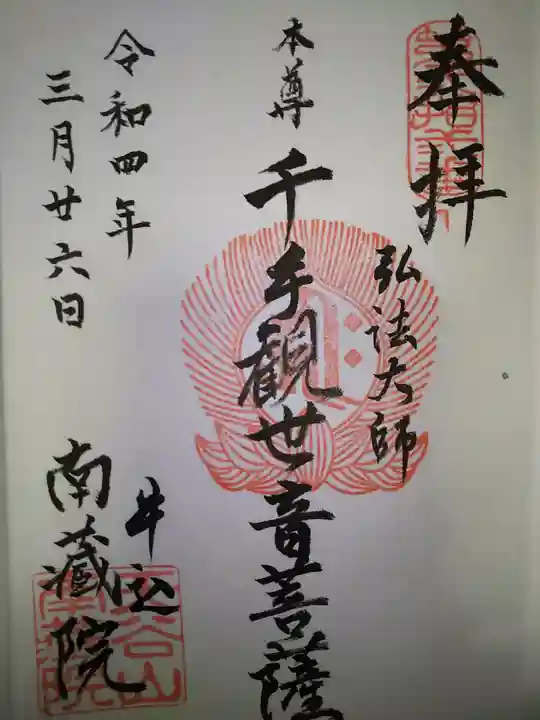 奉拝
弘法大師
本尊 千手観世音菩薩
令和四年
三月廿六日
牛込
南藏院